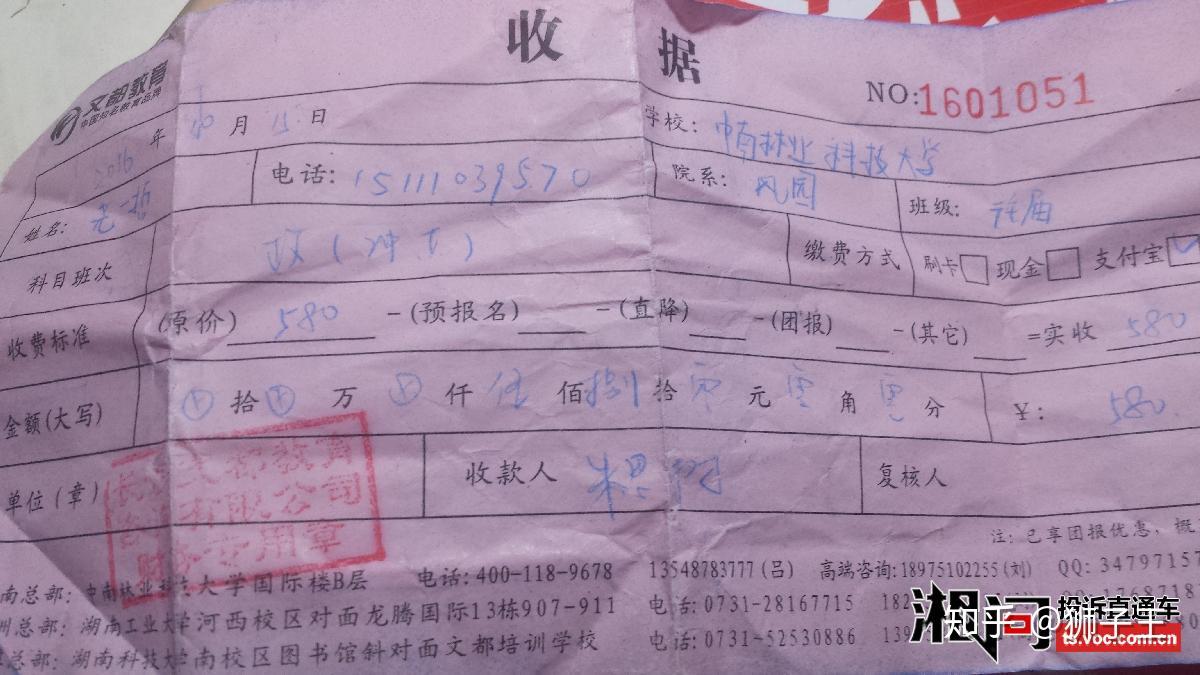 收 据
文都教育
中国知名教育品牌
NO:1601051
2016 年 10 月 15 日
学校: 中南林业科技大学
姓名: 电话: 15111039570 院系: 风园 班级: 往届
科目班次 政(冲 ) 缴费方式 刷卡 现金 支付宝
收费标准 (原价) 580 -(预报名) -(直降) -(团报) -(其它) =实收 580
金额(大写) 拾 万 仟 伍 佰 捌 拾 零 元 零 角 零 分 ¥: 580
单位(章) 收款人 复核人
文都教育
有限公司
专用章
注: 已享团报优惠, 概
南总部: 中南林业科技大学国际楼B层 电话:400-118-9678 13548783777(吕) 高端咨询:18975102255(刘) QQ: 34797157
州总部: 湖南工业大学河西校区对面龙腾国际13栋907-911 电话:0731-28167715 182
总部: 湖南科技大学南校区图书馆斜对面文都培训学校 电话:0731-52530886 139
湘问 投诉直通车
ts.voc.com.cn
知乎 @狮子王